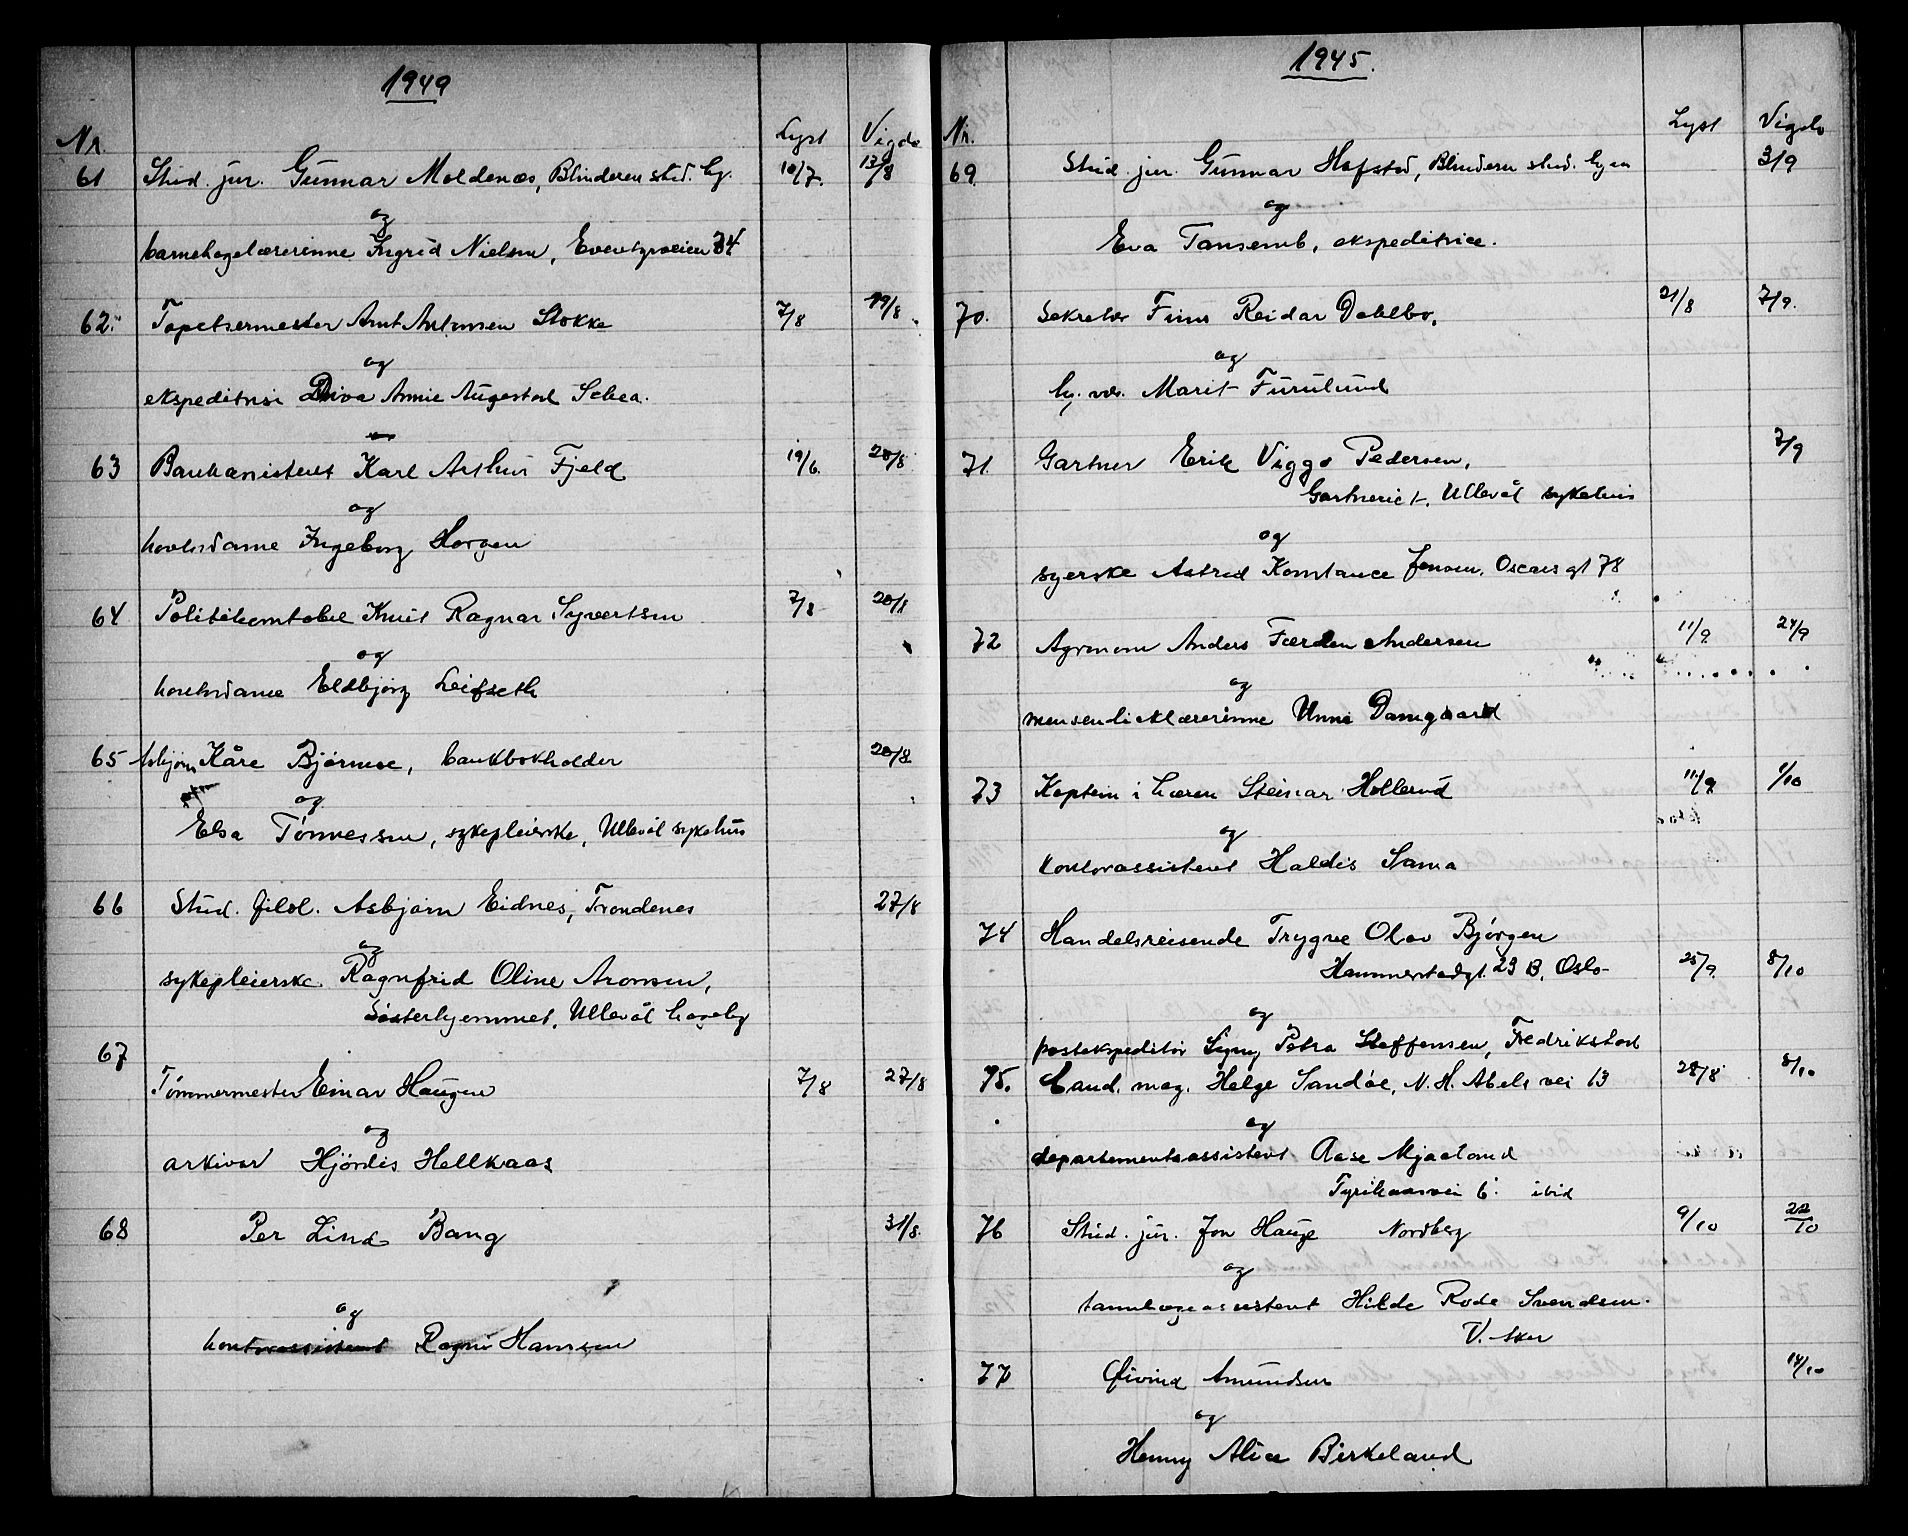 1949
Nr Lyst Vigde
61 Stud. jur. Gunnar Moldenæs, Blindern stud. by. 10/7. 13/8
og
barnehagelærerinne Ingrid Nielsen, Eventyrveien 34
62. Tapetsermester Arnt Antonsen Stokke 7/8 19/8
og
ekspeditrise Diva Annie Augestad
63 Bankassistent Karl Arthur Fjeld 19/6. 20/8
og
kontordame Ingeborg Horgen
64 Politikonstabel Knut Ragnar Syvertsen 7/8 20/8
og
kontordame Eldbjørg Leifseth
65 Asbjørn Kåre Bjørnøe, bankbokholder 20/8
og
Elsa Tønnessen, sykepleierske, Ullevål sykehus
66 Stud. filol. Asbjørn Eidnes, Trondenes 27/8
og
sykepleierske Ragnfrid Oline Aronsen,
Søsterhjemmet, Ullevål hageby
67
Tømmermester Einar Haugen 7/8 27/8
og
arkivar Hjørdis Hellkaas
68 Per Lind Bang 31/8.
og
kontorassistent Ragni Hansen
1945.
Nr. Lyst Vigde
69. Stud. jur. Gunnar Hafstad, Blindern stud. byen 3/9
og
Eva Tansemb, ekspeditrice.
70. Sekretær Finn Reidar Dahlbo, 21/8 7/9.
og
Marit Furulund
71. Gartner Erik Viggo Pedersen, 7/9
Gartneriet, Ullevål sykehus
og
syerske Astrid Konstance Jensen, Oscars gt 78
72 Agronom Anders Færden Andersen 11/9. 24/9
og
mensendiecklærerinne Unni Damgaard
73 Kaptein i hæren Steinar Hollerud 11/9 1/10
og
kontorassistent Haldis Sama
74 Handelsreisende Trygve Olav Bjørgen
Hammerstadgt 23 B, Oslo 25/9. 8/10
og
postekspeditør Signy Petra Steffensen, Fredrikstad
75. Cand. mag. Helge Sandøe, N. H. Abels vei 13 28/8 8/10
og
departementsassistent Aase Mjaaland
Tyrihansvei 6. ibid
76 Stud. jur. Jon Hauge Nordberg 9/10 22/10
og
tannlegeassistent Hilde Rode Svendsen.
V. Aker
77 Øivind Amundsen 14/10
og
Henny Alice Birkeland